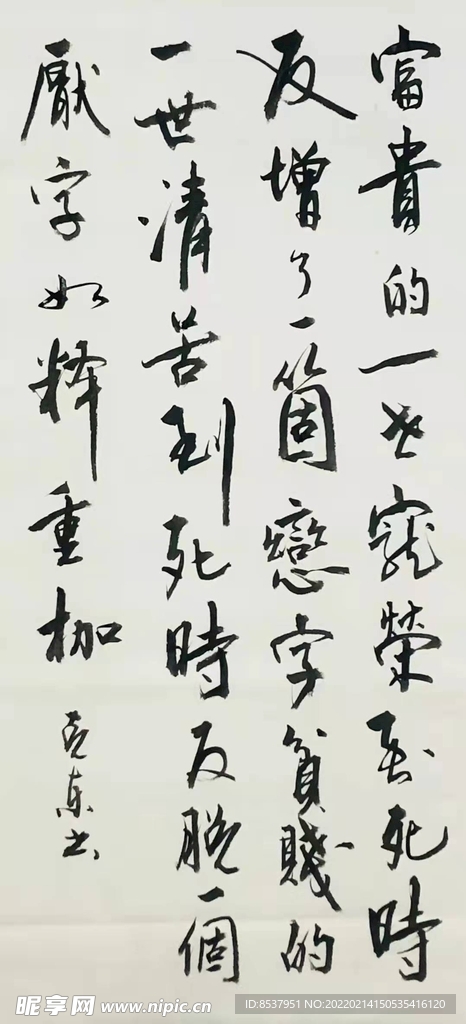 富貴的一世寵榮到死時
反增了一箇戀字貧賤的
一世清苦到死時反脫一個
厭字如釋重枷
克東书
昵享网 www.nipic.cn
ID:8537951 NO:20220214150535416120